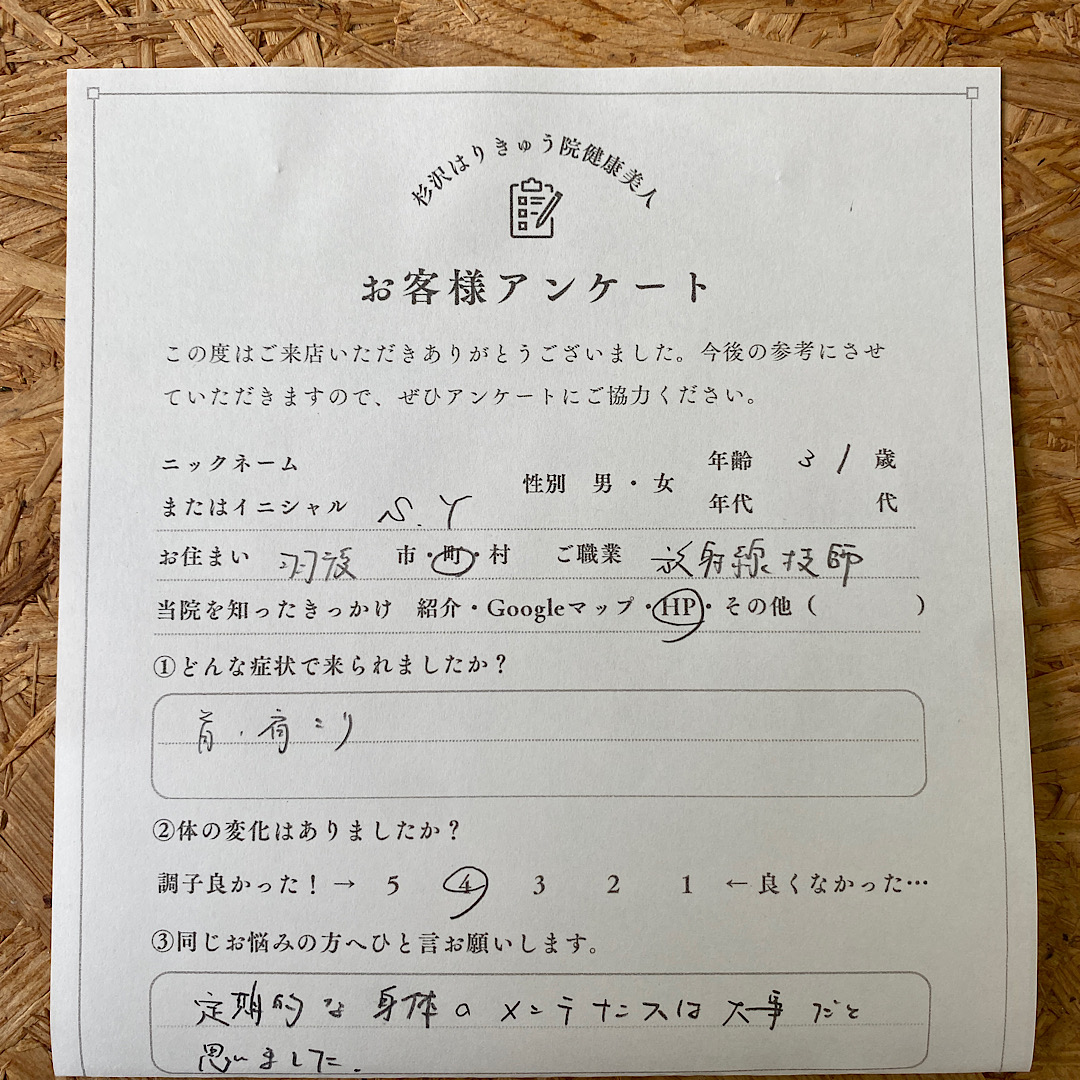 杉沢はりきゅう院健康美人
お客様アンケート
この度はご来店いただきありがとうございました。今後の参考にさせ
ていただきますので、ぜひアンケートにご協力ください。
ニックネーム
またはイニシャル S.Y 性別 男・女 年齢 31 歳
年代 代
お住まい 羽後 市・町・村 ご職業 放射線技師
当院を知ったきっかけ 紹介・Googleマップ・HP・その他( )
①どんな症状で来られましたか？
首・肩こり
②体の変化はありましたか？
調子良かった！→ 5 4 3 2 1 ←良くなかった…
③同じお悩みの方へひと言お願いします。
定期的な身体のメンテナンスは大事だと
思いました.